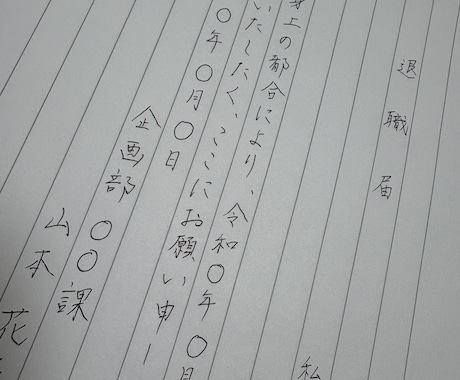 退職届
私
身上の都合により、令和〇年 〇月
いたしたく、ここにお願い申し
〇年〇月〇日
企画部 〇〇課
山本 花